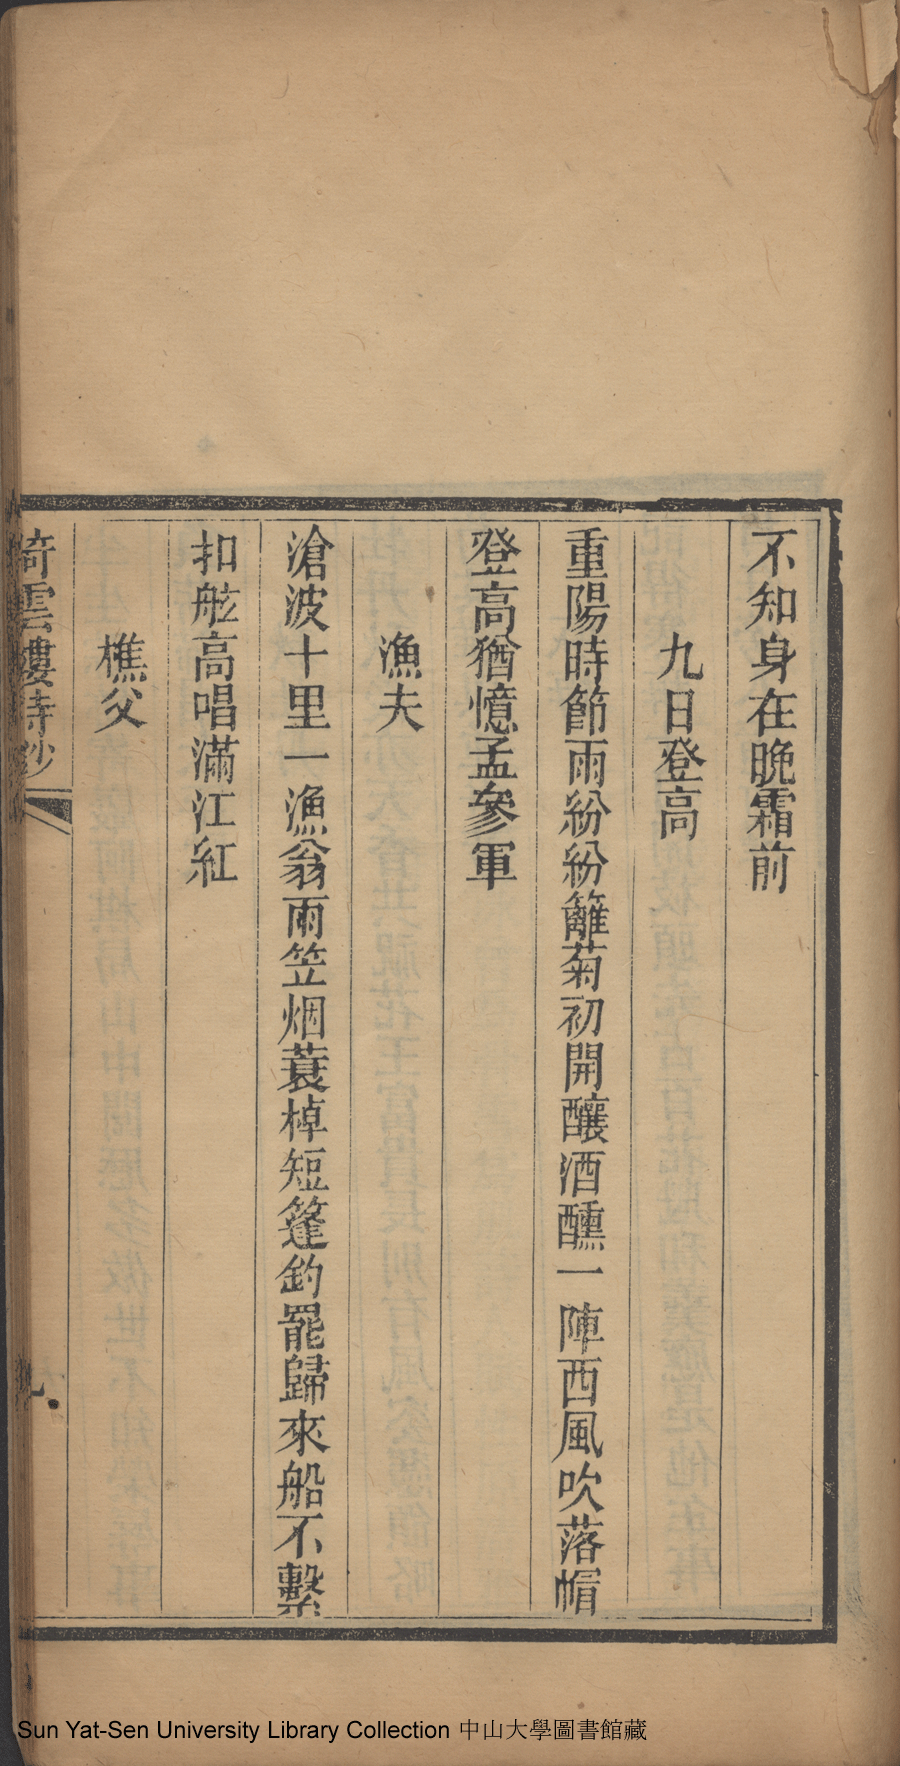 不知身在晚霜前
九日登高
重陽時節雨紛紛籬菊初開釀酒醺一陣西風吹落帽
登高猶憶孟參軍
漁夫
滄波十里一漁翁雨笠烟蓑棹短篷釣罷歸來船不繫
扣舷高唱滿江紅
樵父
倚雲樓詩鈔
九
Sun Yat-Sen University Library Collection 中山大學圖書館藏